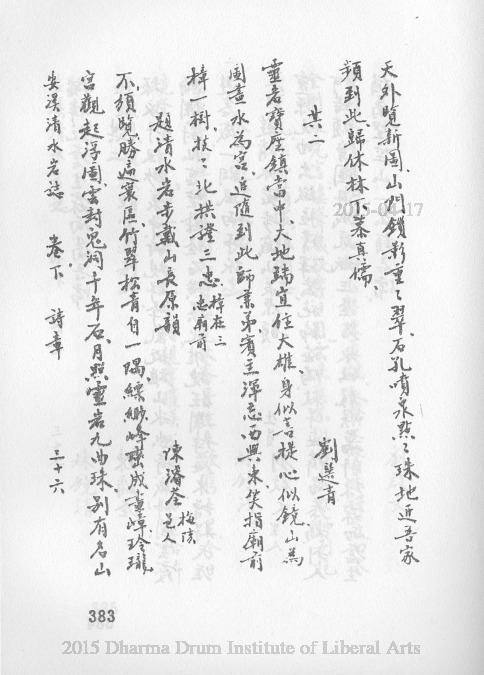 天外覽新圖、山門鎖影重々翠、石孔噴泉點々珠、地近吾家
頻到此、歸休林下慕真儒、
其二
劉 青
靈岩寶座鎮當中、大地端宜住大雄、身似菩提心似鏡、山為
圖畫水為宮、追隨到此師兼弟、賓主渾忘西與東、笑指廟前
樟一樹、枝々北拱證三忠、樟在三忠廟前
題清水岩步戴山長原韻
陳濬荃 梅院邑人
不須覽勝遍寰區、竹翠松青自一隅、縹緲峰巒成畫嶂、玲瓏
宮觀起浮圖、雲封鬼洞千年石、月照靈岩九曲珠、別有名山
安溪清水岩誌 卷下 詩章 三十六
383
2015-04-17
2015 Dharma Drum Institute of Liberal Arts